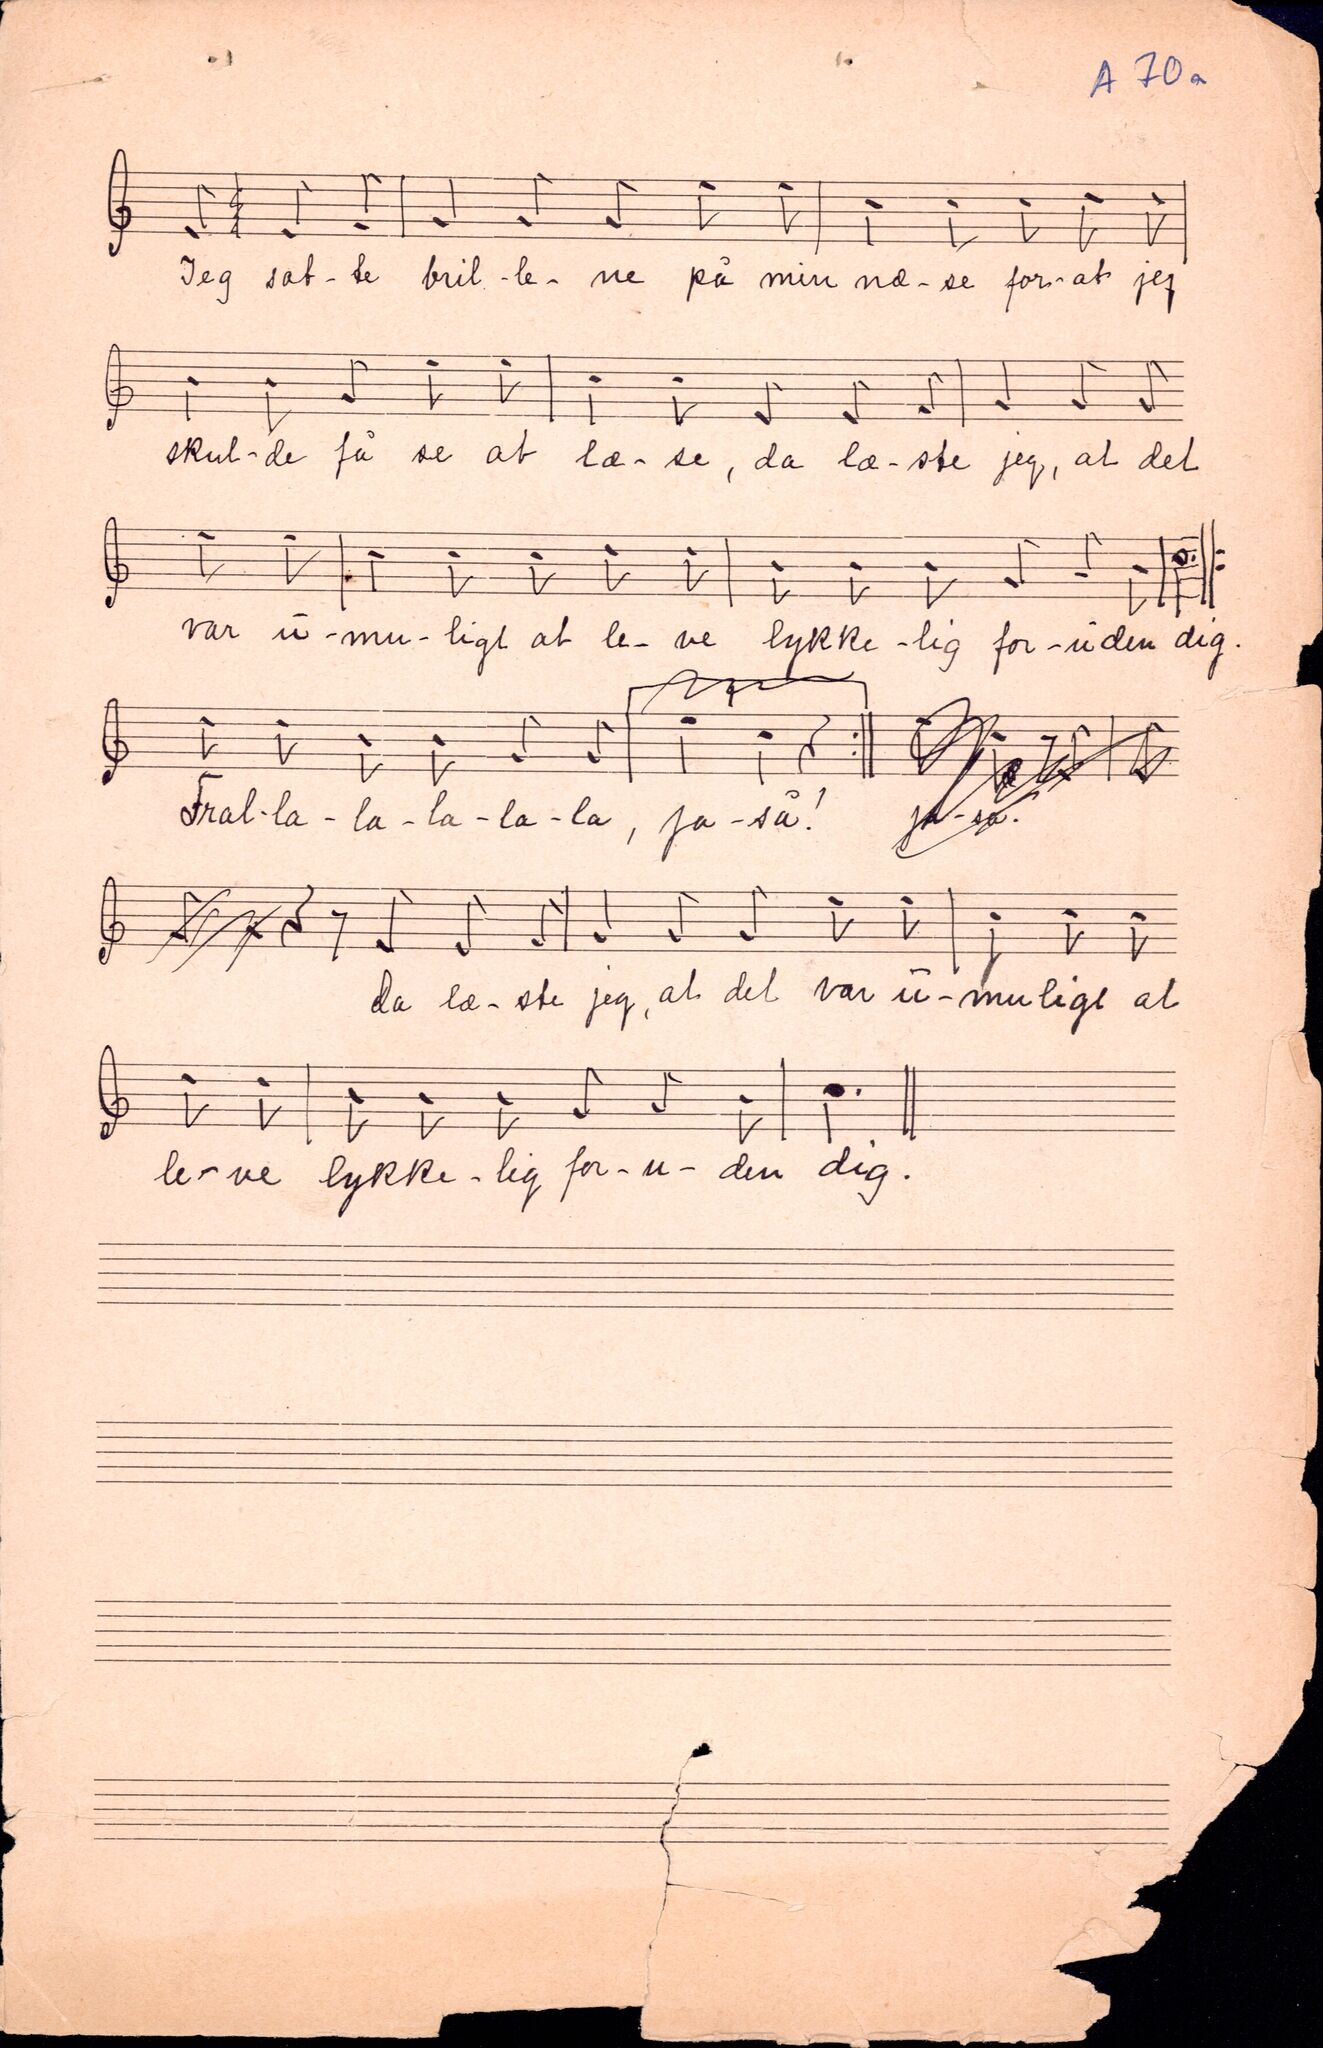 A 70a
Jeg sat-te bril-le-ne på min næ-se for-at jeg
skul-de få se at læ-se, da læ-ste jeg, at det
var ū-mu-ligt at le-ve lykke-lig for-ūden dig.
Fral-la-la-la-la-la, ja-så! ja-så!
Da læ-ste jeg, at det var ū-muligt at
le-ve lykke-lig for-u-den dig.